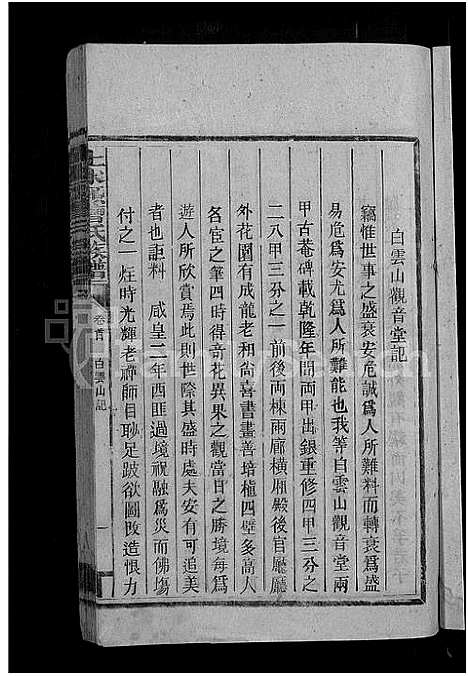 白雲山觀音堂記
竊惟世事之盛衰安危誠爲人所難料而轉衰爲盛
易危爲安尤爲人所難能也我等白雲山觀音堂兩
甲古菴碑載乾隆年間両甲出銀重修四甲三分之
二八甲三分之一前後両棟兩廊橫厢殿後官廳廳
外花園有成龍老和尙喜書畫善培植四壁多高人
各宦之筆四時得竒花異果之觀當日之勝境每爲
遊人所欣賞焉此則世際其盛時處夫安有可追美
者也詎料 咸皇二年西匪過境祝融爲災而佛塲
付之一炷時光輝老禪師目聄足跛欲圖改造恨力
卷首 白雲山記
氏族譜